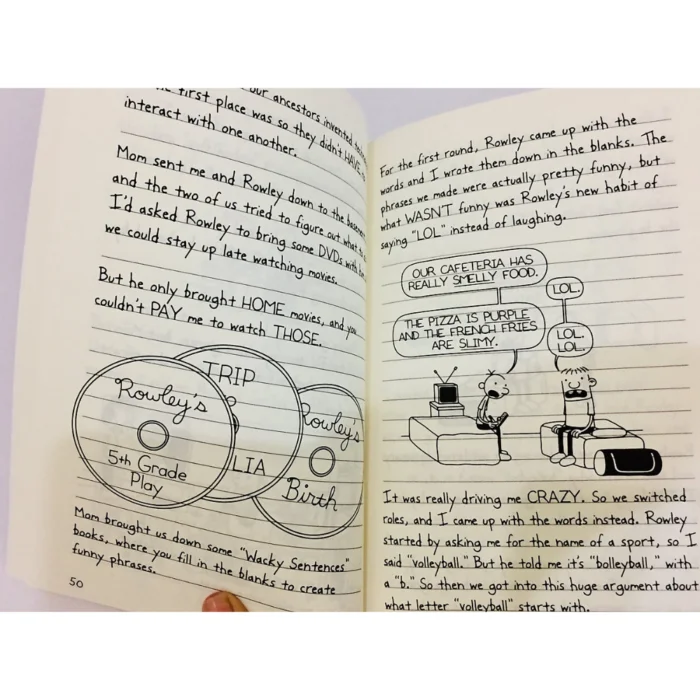 our ancestors invented
first place was so they didn't HAVE
interact with one another.
Mom sent me and Rowley down to the
and the two of us tried to figure out what to
I'd asked Rowley to bring some DVDs with
we could stay up late watching movies.
But he only brought HOME movies, and you
couldn't PAY me to watch THOSE.
Rowley's
5th Grade
Play
TRIP
LIA
Rowley's
Birth
Mom brought us down some "Wacky Sentences"
books, where you fill in the blanks to create
funny phrases.
50
For the first round, Rowley came up with the
words and I wrote them down in the blanks. The
phrases we made were actually pretty funny, but
what WASN'T funny was Rowley's new habit of
saying "LOL" instead of laughing.
OUR CAFETERIA HAS
REALLY SMELLY FOOD.
LOL.
THE PIZZA IS PURPLE
AND THE FRENCH FRIES
ARE SLIMY.
LOL.
LOL.
It was really driving me CRAZY. So we switched
roles, and I came up with the words instead. Rowley
started by asking me for the name of a sport, so I
said "volleyball." But he told me it's "bolleyball," with
a "b." So then we got into this huge argument about
what letter "volleyball" starts with.